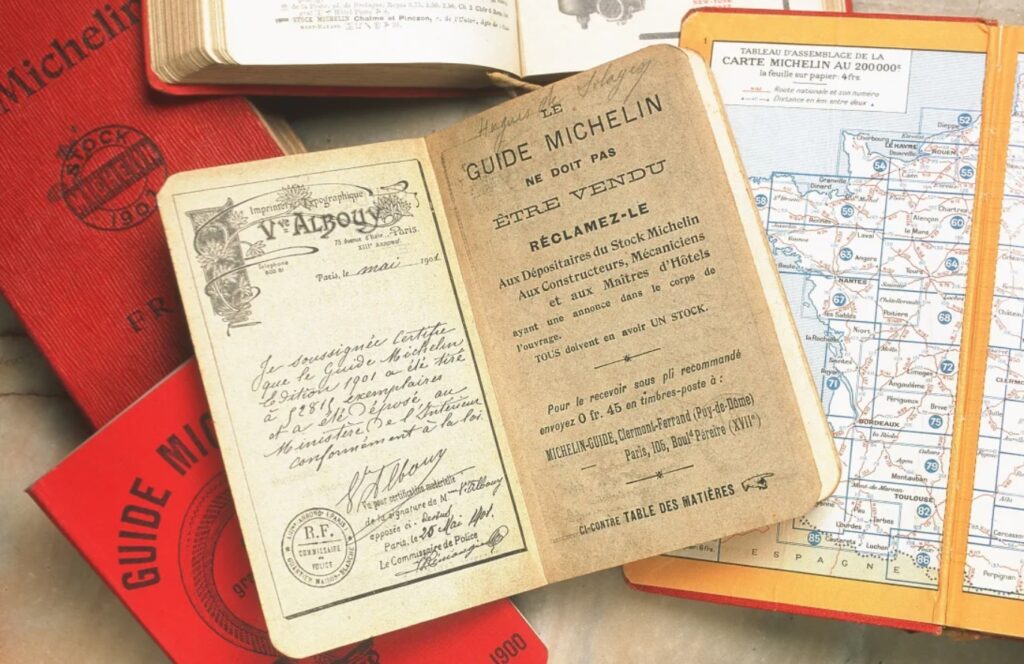 Michelin
STOCK
MICHELIN
1902
FR
STOCK MICHELIN Chalme et Pinczon, r. de l'Usine,
GUIDE MI
1900
Imprimerie Typographique
Vve ALBOUY
75 Avenue d'Italie, Paris.
XIIIe ARRONDt
Téléphone
Paris, le mai 1901
Je soussignée certifie
que le Guide Michelin
(édition 1901 a été tiré
à 52815 exemplaires
et a été déposé au
Ministère de l'Intérieur
conformément à la loi.
Vve Albouy
Vu pour certification matérielle
de la signature de Me Ve Albouy
apposée ci-dessus
Paris, le 25 Mai 1901.
Le Commissaire de Police
R.F.
COMMISSAIRE
DE
POLICE
Hugues
LE
GUIDE MICHELIN
NE DOIT PAS
ÊTRE VENDU
RÉCLAMEZ-LE
Aux Dépositaires du Stock Michelin
Aux Constructeurs, Mécaniciens
et aux Maîtres d'Hôtels
ayant une annonce dans le corps de
l'ouvrage.
TOUS doivent en avoir UN STOCK.
Pour le recevoir sous pli recommandé
envoyez 0 fr. 45 en timbres-poste à :
MICHELIN-GUIDE, Clermont-Ferrand (Puy-de-Dôme)
Paris, 105, Bould Péreire (XVIIe)
CI-CONTRE TABLE DES MATIÈRES
TABLEAU D'ASSEMBLAGE DE LA
CARTE MICHELIN AU 200000e
la feuille sur papier: 4frs
Route nationale et son numéro
Distance en km entre deux
Dieppe
52
Cherbourg
LE HAVRE
Deauville
ROUEN
54
55
Granville
Dinard
Chartres
58
59
Alençon
60
le Mans
Laval
Vannes
63
Angers
Tours
64
NANTES
67
Châtellerault
les Sables
Poitiers
68
Niort
Royan
Limoges
71
Angoulême
72
Périgueux
Brive
75
BORDEAUX
Agen
79
Montauban
Mont-de-Marsan
TOULOUSE
82
Pau
Tarbes
Lourdes
85
Cauterets
Luchon
86
ESPAGNE
CLERMO
Carcassonne
Perpignan